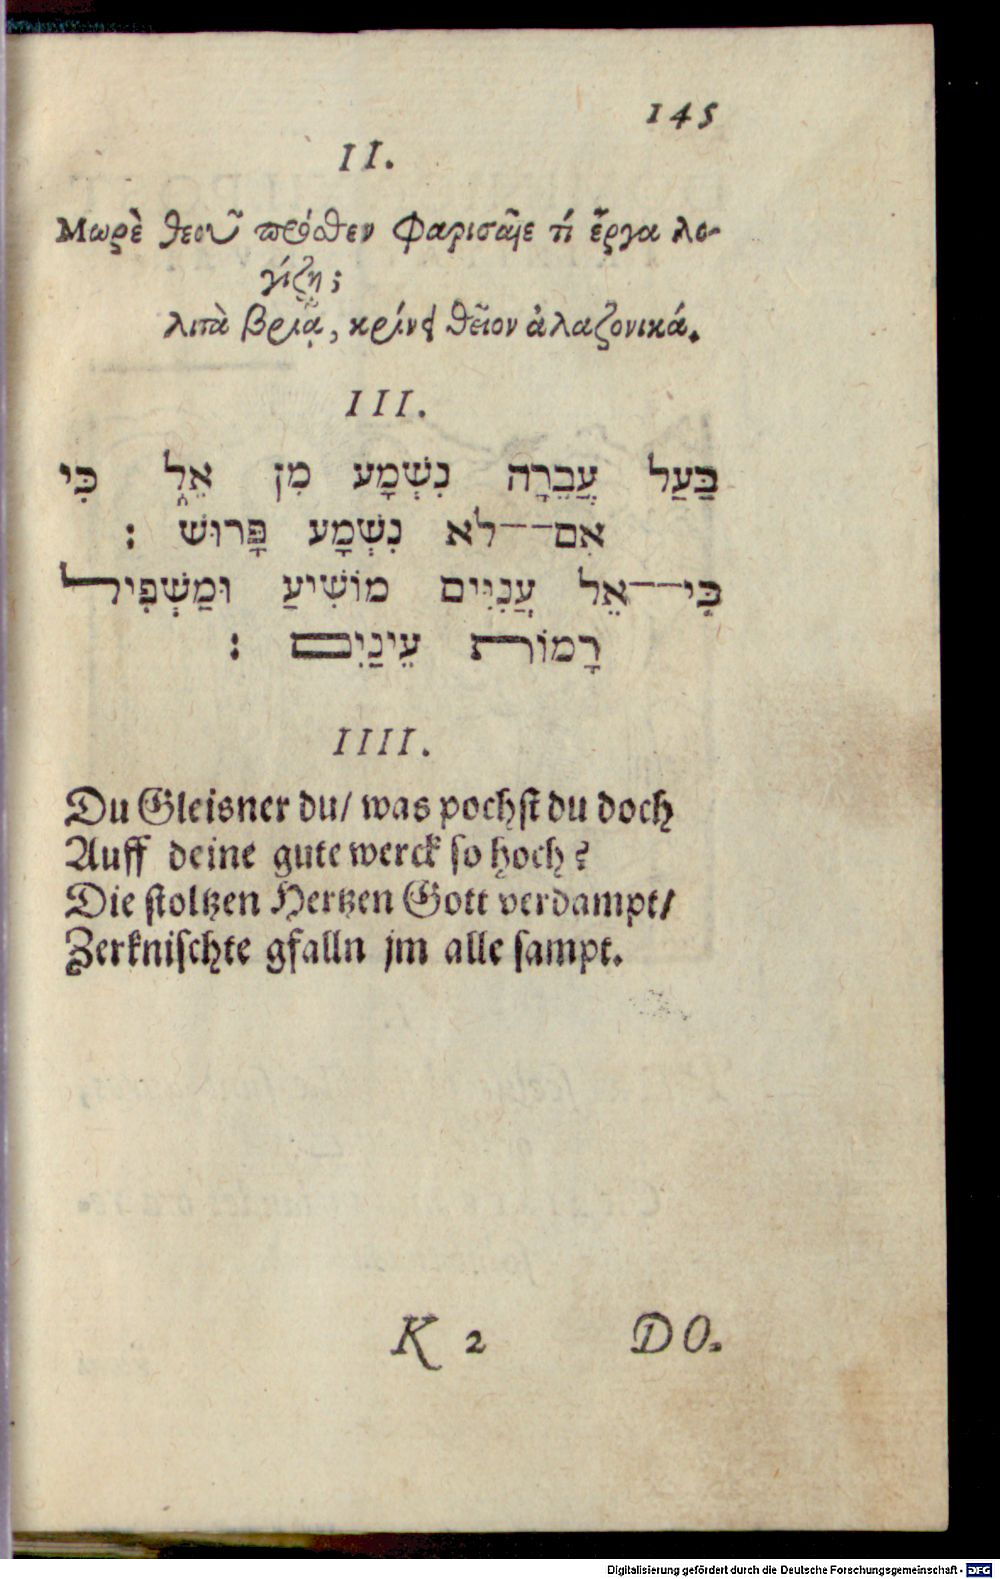 145
II.
Μωρὲ θεοῦ πρόσθεν Φαρισαῖε τί ἔργα λο-
γίζῃ;
λιτὰ βριᾷ, κρίνει θεῖον ἀλαζονικά.
III.
בַּעַל עֲבֵרָה נִשְׁמָע מִן אֵל כִּי
אִם־־לֹא נִשְׁמָע פָּרוּשׁ :
כִּי־־אֵל עֲנִיִּים מוֹשִׁיעַ וּמַשְׁפִּיל
רָמוֹת עֵינַיִם :
IIII.
Du Gleisner du/ was pochst du doch
Auff deine gute werck so hoch?
Die stoltzen Hertzen Gott verdampt/
Zerknischte gfalln jm alle sampt.
K 2 DO.
Digitalisierung gefördert durch die Deutsche Forschungsgemeinschaft - DFG